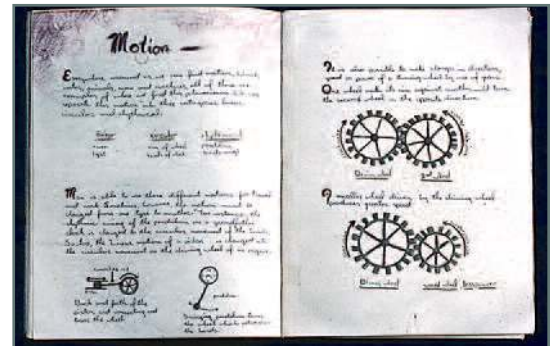 Motion —
Everywhere around us we find motion. Wind,
water, animals, men and machines all of these are
examples of what we find this phenomenon. We can
separate this motion into three categories: linear,
circular and rhythmical.
linear circular rhythmical
rim of wheel pendulum
light
Man is able to use these different motions for himself
and sometimes, however, the motion must be
changed from one type to another. For instance, the
rhythmic swing of the pendulum on a grandfather
clock is changed to the circular movement of the hands.
Also, the linear motion of a piston is changed into
the circular movement on the driving wheel of an engine.
connecting rod
Back and forth of the
piston and connecting rod
turns the wheel
pendulum
Swinging pendulum turns
the wheel which
the hands.
It is also possible to make changes in direction,
speed or power of a turning wheel by use of gears.
One wheel with its rim against another will turn
the second wheel in the opposite direction.
Driving wheel 2nd wheel
A smaller wheel driven by the driving wheel
produces greater speed
Driving wheel